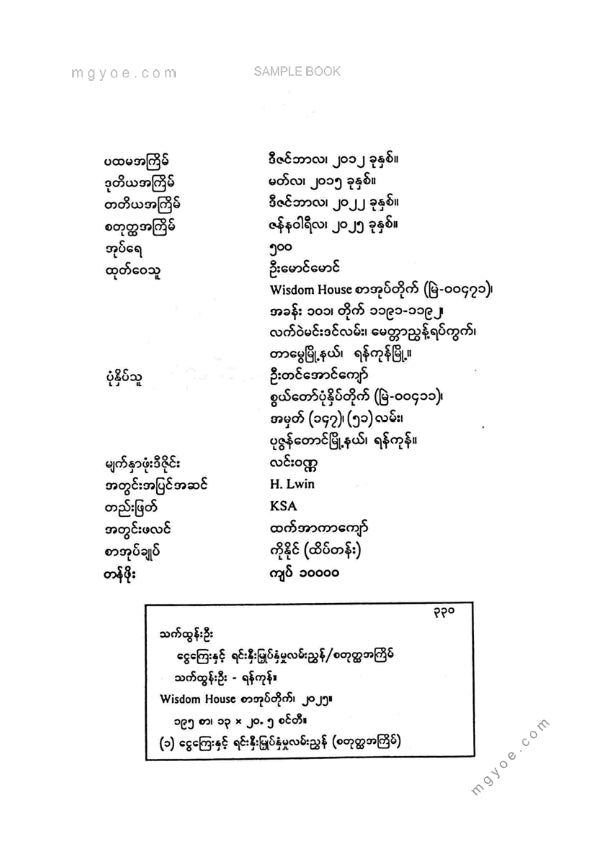 mgyoe.com SAMPLE BOOK
ပထမအကြိမ် ဒီဇင်ဘာလ၊ ၂၀၁၂ ခုနှစ်။
ဒုတိယအကြိမ် မတ်လ၊ ၂၀၁၅ ခုနှစ်။
တတိယအကြိမ် ဒီဇင်ဘာလ၊ ၂၀၂၂ ခုနှစ်။
စတုတ္ထအကြိမ် ဇန်နဝါရီလ၊ ၂၀၂၅ ခုနှစ်။
အုပ်ရေ ၅၀၀
ထုတ်ဝေသူ ဦးမောင်မောင်
Wisdom House စာအုပ်တိုက် (မြဲ-၀၀၄၇၁)၊
အခန်း ၁၀၁၊ တိုက် ၁၁၉၁-၁၁၉၂၊
လက်ဝဲမင်းဒင်လမ်း၊ မေတ္တာညွန့်ရပ်ကွက်၊
တာမွေမြို့နယ်၊ ရန်ကုန်မြို့။
ပုံနှိပ်သူ ဦးတင်အောင်ကျော်
စွယ်တော်ပုံနှိပ်တိုက် (မြဲ-၀၀၄၁၁)၊
အမှတ် (၁၄၇)၊ (၅၁) လမ်း၊
ပုဇွန်တောင်မြို့နယ်၊ ရန်ကုန်။
မျက်နှာဖုံးဒီဇိုင်း လင်းဝဏ္ဏ
အတွင်းအပြင်အဆင် H. Lwin
တည်းဖြတ် KSA
အတွင်းဖလင် ထက်အာကာကျော်
စာအုပ်ချုပ် ကိုနိုင် (ထိပ်တန်း)
တန်ဖိုး ကျပ် ၁၀၀၀၀
၃၃၀
သက်ထွန်းဦး
ငွေကြေးနှင့် ရင်းနှီးမြှုပ်နှံမှုလမ်းညွှန်/စတုတ္ထအကြိမ်
သက်ထွန်းဦး - ရန်ကုန်။
Wisdom House စာအုပ်တိုက်၊ ၂၀၂၅။
၁၉၅ စာ၊ ၁၃ × ၂၀.၅ စင်တီ။
(၁) ငွေကြေးနှင့် ရင်းနှီးမြှုပ်နှံမှုလမ်းညွှန် (စတုတ္ထအကြိမ်)
mgyoe.com